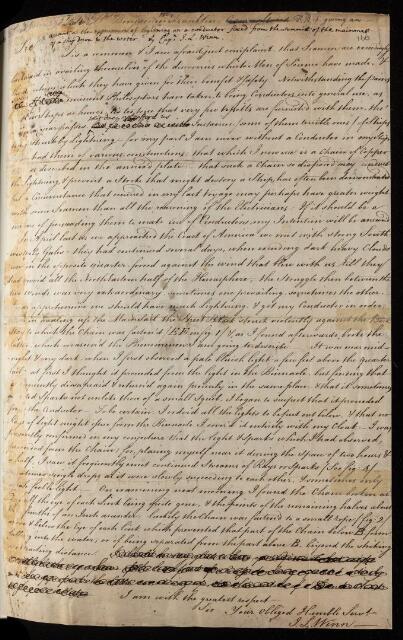 giving an
account of the appearance of lightning on a conductor fixed from the summit of the mainmast
of a ship down to the water by Capt. J. L. Winn
Sir
It is a common & I am afraid just complaint, that Seamen are exceedingly
backward in availing themselves of the discoveries which Men of Science have made, &
the Instructions which they have given for their benefit & safety. Notwithstanding the pains
Philosophers have taken to bring Conductors into general use, as
Ships as houses, it is too true that very few vessels are furnished with them, tho'
every year affords Instances, some of them terrible ones, of Ships
struck by Lightning for very few. I am never without a Conductor in my Ship
had them of various constructions, that which I now use is a Chain of Copper
as described in the annexed plate that such a Chain so disposed may
the Lightning, & prevent a stroke that might destroy a Ship has often been demonstrated
but a Circumstance that occurred in my last Voyage may perhaps have greater weight
with some Seamen than all the reasoning of the Electricians If it should be a
means of persuading them to make use of Conductors, my Intention will be answered
In April last as we approached the Coast of America we met with strong South
westerly Gales they had continued several days, when exceeding dark heavy Clouds
rose in the opposite quarter, forced against the wind that blew with us till they
had covered all the Northeastern half of the Hemisphere, the struggle then between the
two winds was very extraordinary sometimes one prevailing, sometimes the other
I was apprehensive we should have much Lightning, & got my Conductor in order,
in hauling up the Main sail the Sheet Block struck violently against the Back
Stay to which the Chain was fastened & as I found afterwards, broke the
latter, which occasioned the Phenomenon I am going to describe It was near mid-
night & very dark, when I first observed a pale bluish light a few feet above the Quarter
rail at first I thought it proceeded from the light in the Binnacle, but finding that
it frequently disappeared & returned again precisely in the same place, & that it sometimes
emitted Sparks not unlike those of a small Squib, I began to suspect that it proceeded
from the Conductor To be certain, I ordered all the Lights to be put out below & that no
rays of light might issue from the Binnacle I covered it entirely with my Cloak I was
presently confirmed in my conjecture that the light & Sparks which I had observed,
proceeded from the Chain, for, placing myself near it during the Space of two hours & a
half, I saw it frequently emit continued Streams of Rays or Sparks (See fig. 3)
sometimes single drops as it were slowly succeeding to each other, & sometimes only
a pale feeble light. On examining next morning I found the Chain broken at
B, the eye of each Link being quite gone, & the points of the remaining halves about
three fourths of an Inch asunder. Luckily the Chain was fastened to a small rope (fig. 2)
above & below the eye of each link which prevented that part of the Chain below B from
falling into the water, or of being separated from the part above B beyond the striking
or attracting distance
I am with the greatest respect
Sir Your Obliged Humble Servt
J L Winn